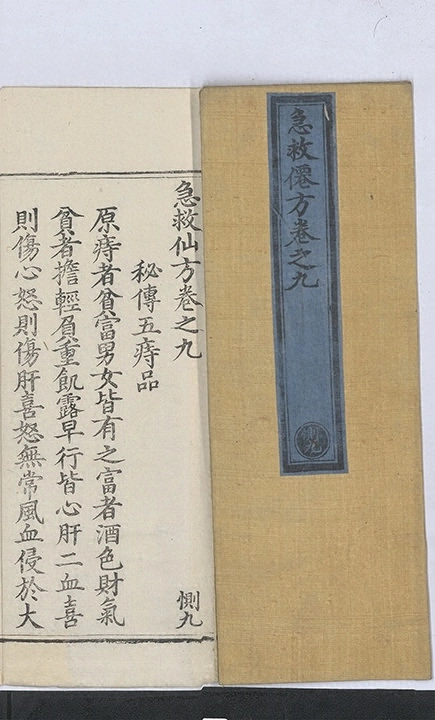 急救僊方卷之九
惻九
急救仙方卷之九
惻九
秘傳五痔品
原痔者貧富男女皆有之富者酒色財氣
貧者擔輕負重飢露早行皆心肝二血喜
則傷心怒則傷肝喜怒無常風血侵於大